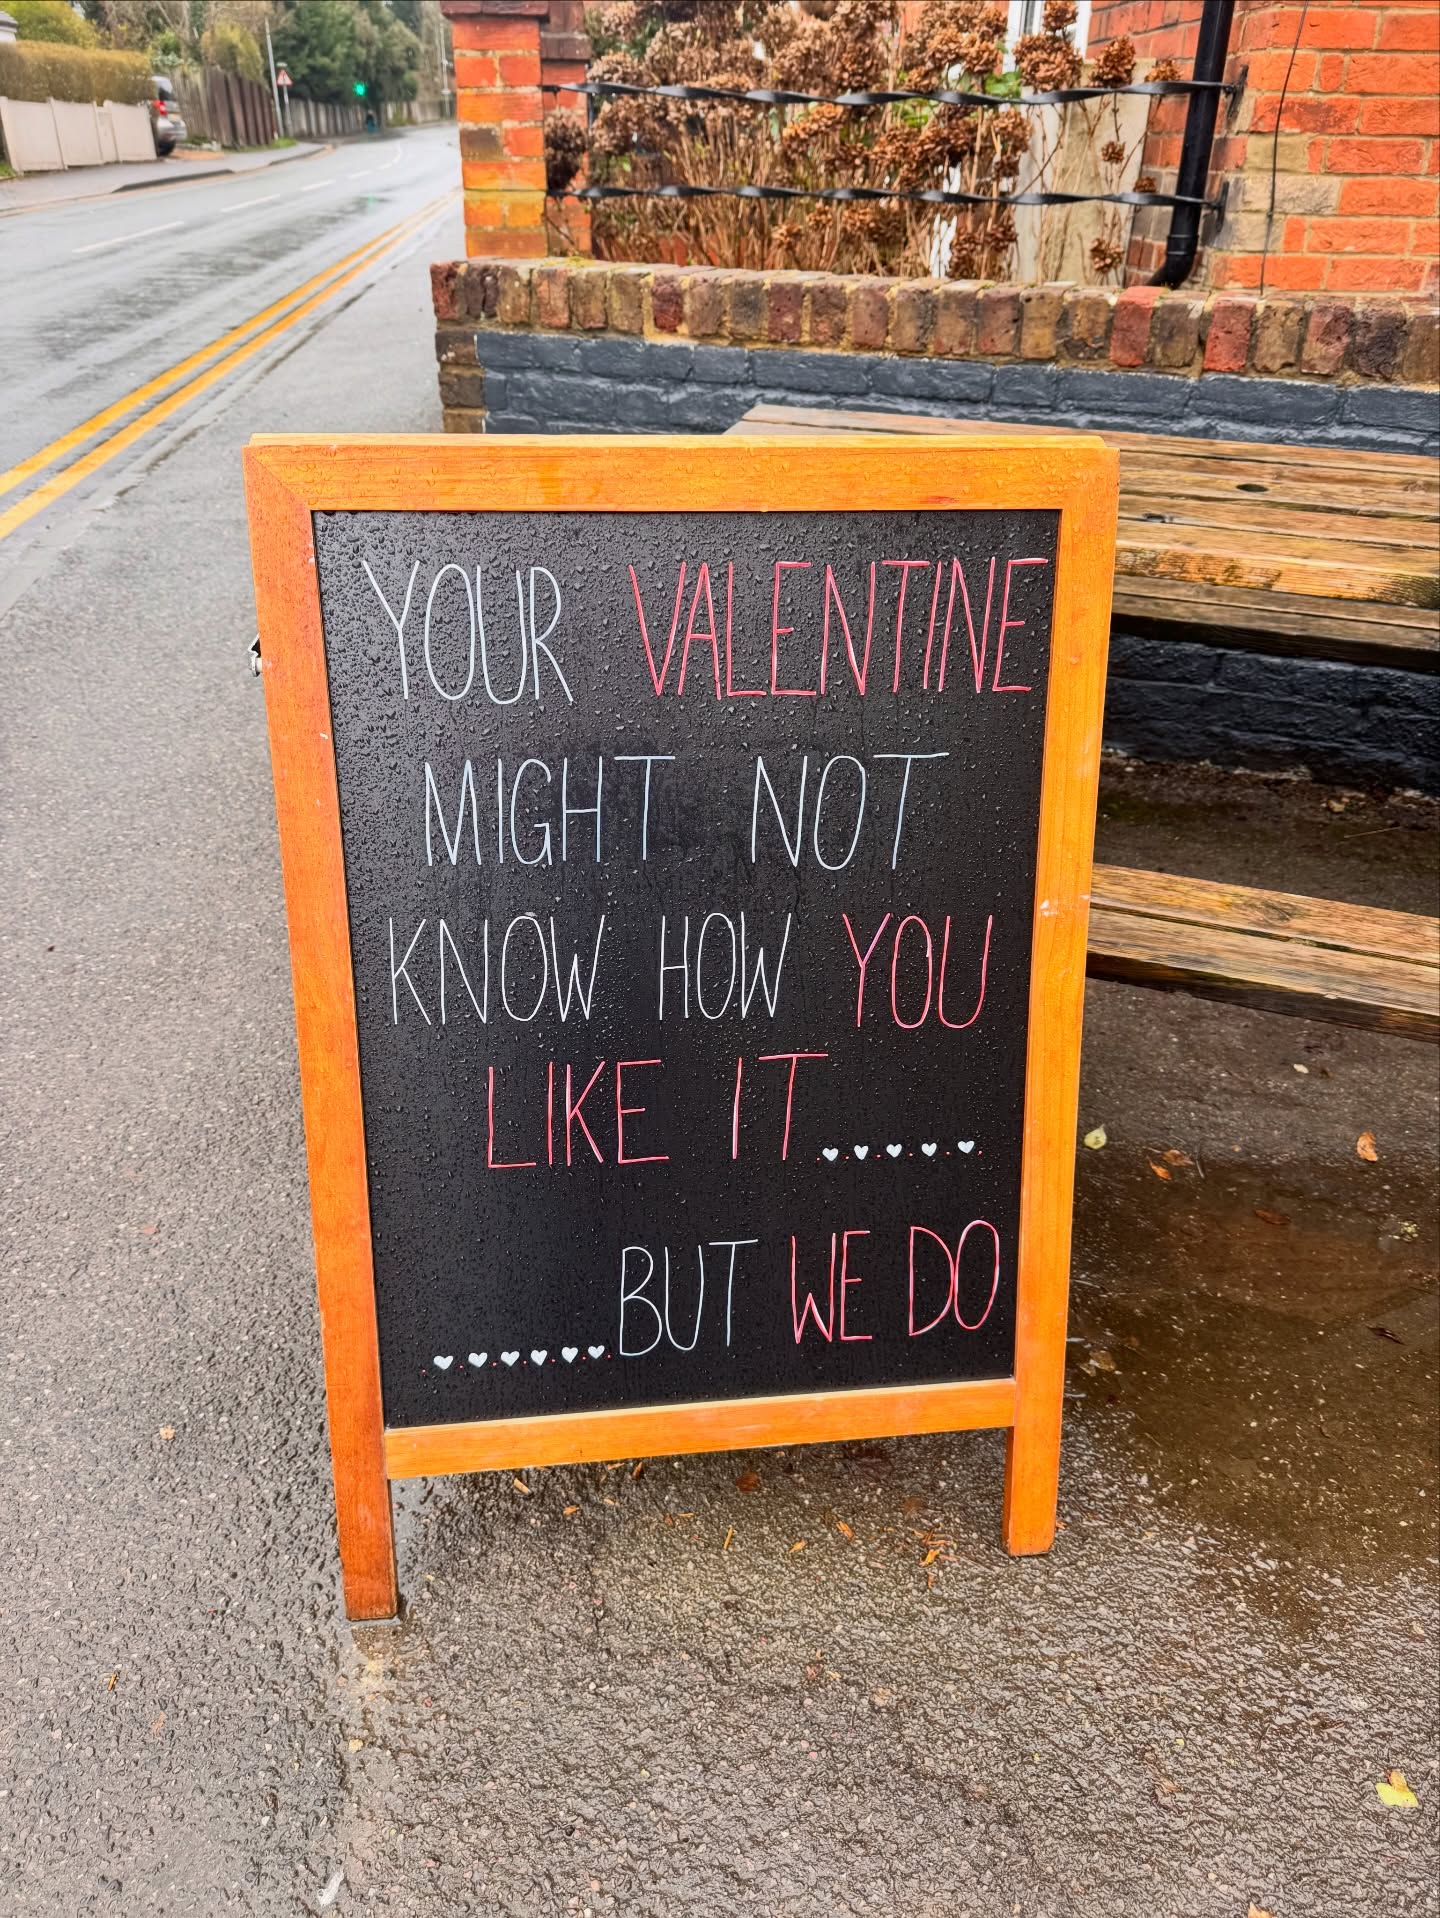 YOUR VALENTINE
MIGHT NOT
KNOW HOW YOU
LIKE IT.♥.♥.♥.♥.♥.
♥.♥.♥.♥.♥.♥.BUT WE DO